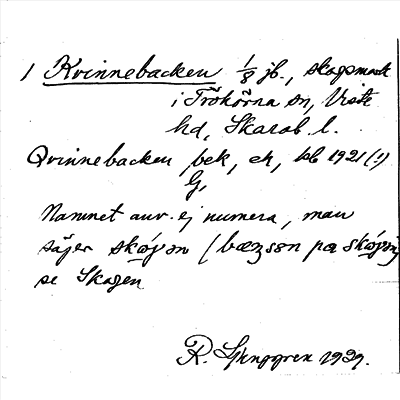 1 Kvinnebacken 1/8 jb., skogsmark
i Trökörna sn, Viste
hd, Skarab. l.
Qvinnebacken bek, ek,
G,
Namnet anv. ej numera, man
säger skóγən / bæn sən pa
se Skogen
R. Ljunggren 1939.